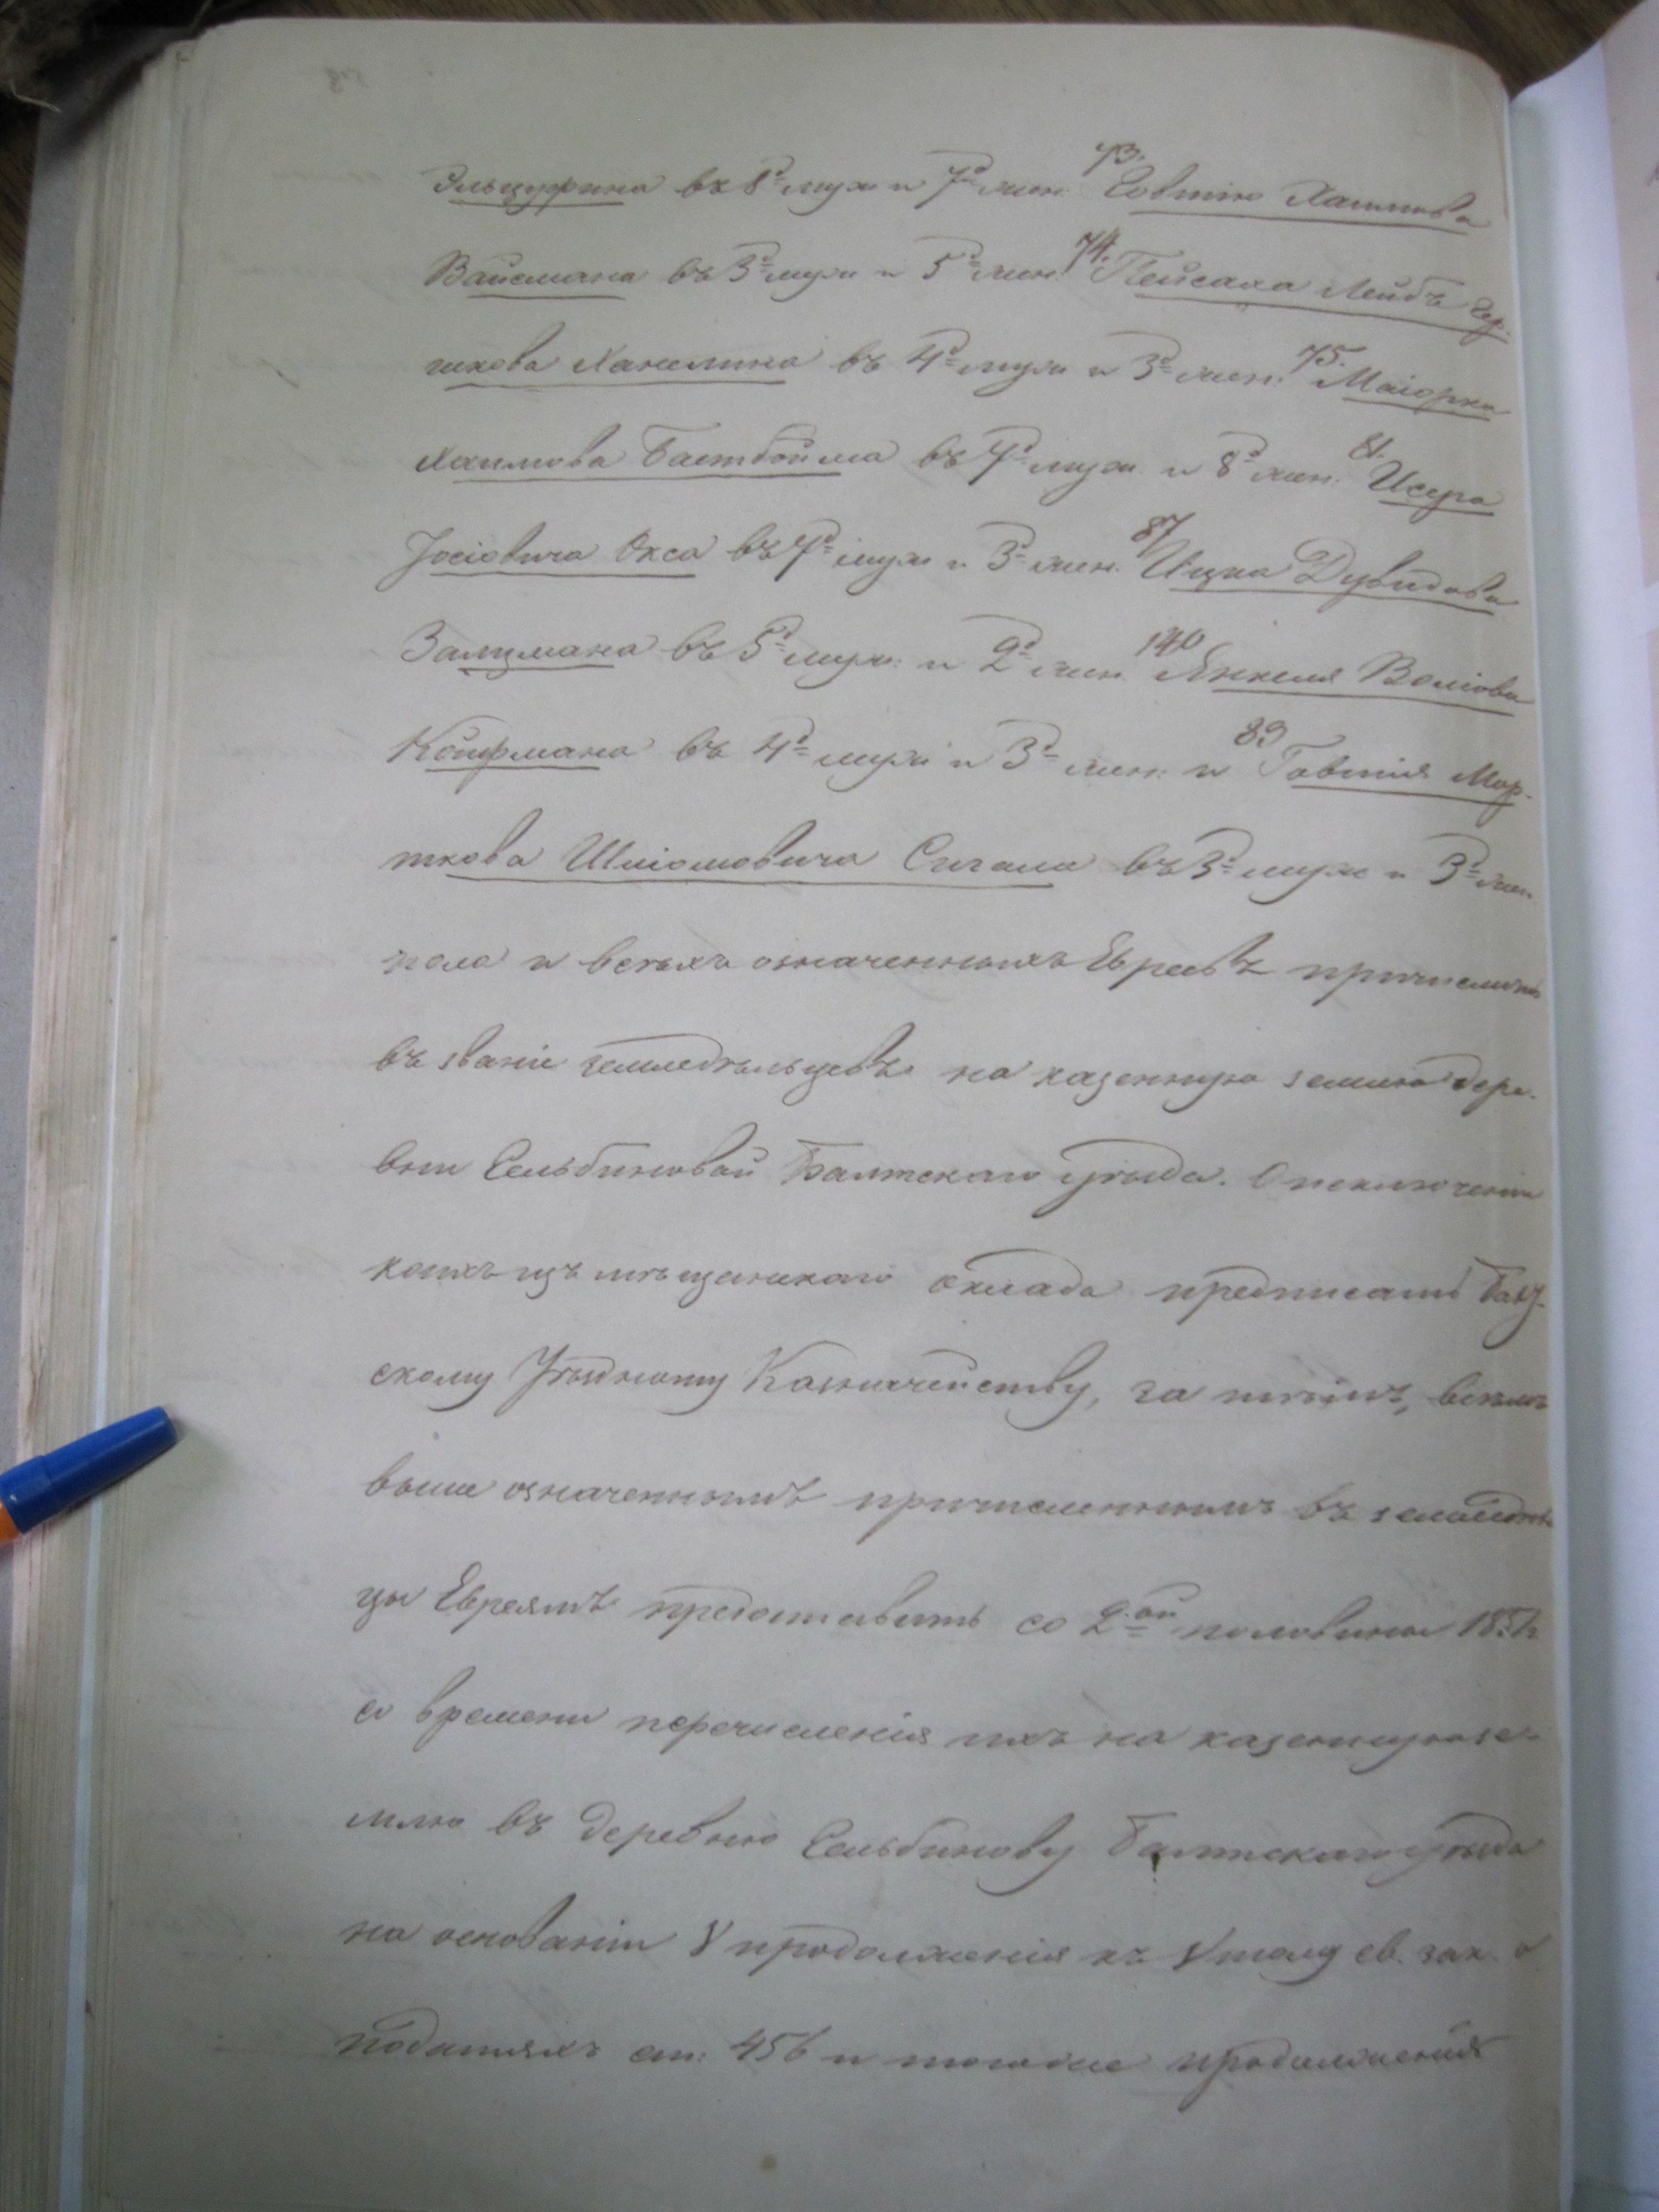 Эльцуфина въ 8д муж и 7д жен. 73. Говшію Хаимова
Вайсмана въ 3д муж и 5д жен. 74. Пейсаха Лейбъ Гер-
шкова Ханелиса въ 4д муж и 3д жен. 75. Маіорка
Хаимова Бастбойма въ 7д муж. и 8д жен. 81. Исера
Іосіовича Окса въ 7д муж и 3д жен. 87 Ицка Дувидова
Залцмана въ 5д муж. и 2д жен. 140 Янкеля Волiова
Койфмана въ 4д муж и 3д жен. и 89 Говшія Мор-
ткова Шліомовича Сигала въ 3д муж и 3д жен.
пола и всехъ означенныхъ Евреевъ причислить
въ званіе земледельцевъ на казенную землю дере-
вни Сельбиновой Балтскаго уезда. О исключеніи
коихъ изъ мещанскаго оклада предписать Балт-
скому Уездному Казначейству, за темъ, всемъ
выше означеннымъ причисленнымъ въ земледель-
цы Евреямъ предоставить со 2-ой половины 185
со времени перечисленія ихъ на казенную зе-
млю въ деревню Сельбинову Балтскаго уезда
на основаніи V продолженія къ V тому св. зак. о
податяхъ ст: 456 и тогоже продолженія